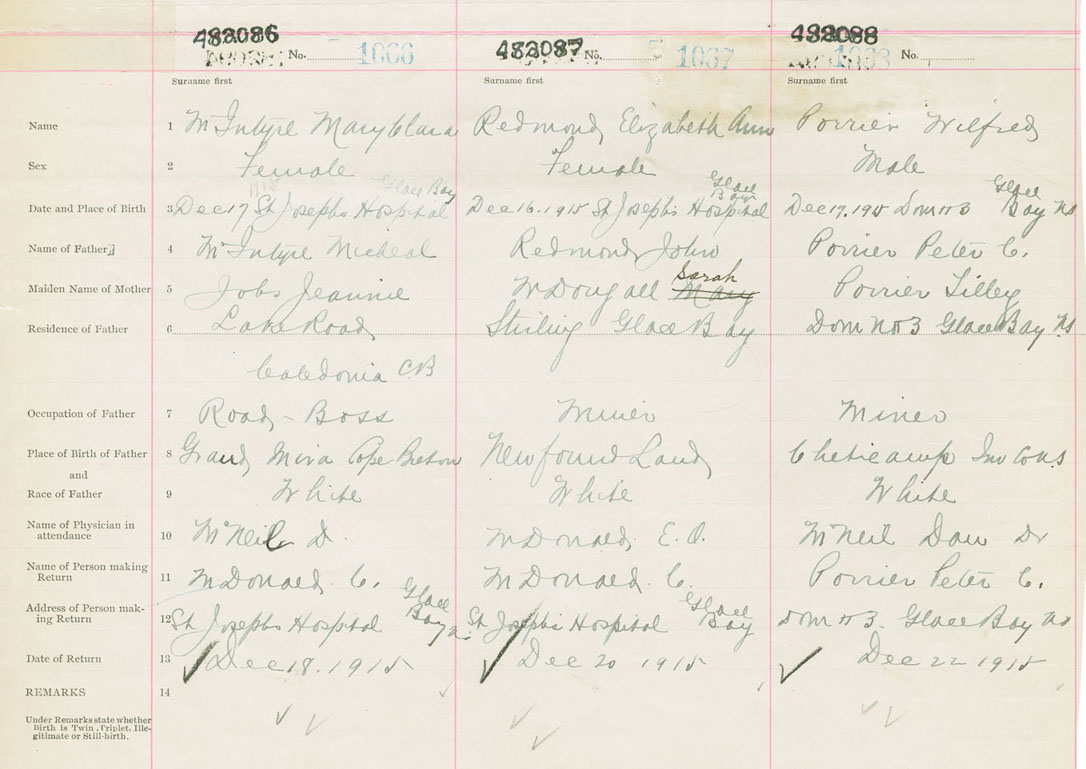 432086 No. 1066 432087 No. 1067 432088 No. 1068
Surname first Surname first Surname first
Name 1 McIntyre Mary Clara Redmond, Elizabeth Ann Poirier Wilfred
Sex 2 Female Female Male
1915 Glace Bay Glace Bay Glace
Date and Place of Birth 3 Dec 17 St Josephs Hospital Dec 16. 1915 St Josephs Hospital Dec 17. 1915 Dom no 3 Bay NS
Name of Father 4 McIntyre Micheal Redmond, John Poirier Peter C.
Sarah
Maiden Name of Mother 5 Jobs Jeannie McDougall Mary Poirier Tilley
Residence of Father 6 Lake Road, Stirling Glace Bay Dom no 3 Glace Bay NS
Caledonia C.B
Occupation of Father 7 Road-Boss Miner Miner
Place of Birth of Father 8 Grand Mira Cape Breton Newfound Land Cheticamp Inv Co N.S
and
Race of Father 9 White White White
Name of Physician in
attendance 10 McNeil D. McDonald, E. O. McNeil Dan Dr
Name of Person making
Return 11 McDonald. C. McDonald. C. Poirier Peter C.
Address of Person mak- Glace Glace
ing Return 12 St Josephs Hospital Bay St Josephs Hospital Bay Dom no 3. Glace Bay NS
Date of Return 13 Dec 18. 1915 Dec 20 1915 Dec 22 1915
REMARKS 14
Under Remarks state whether
Birth is Twin, Triplet, Ille-
gitimate or Still-birth.